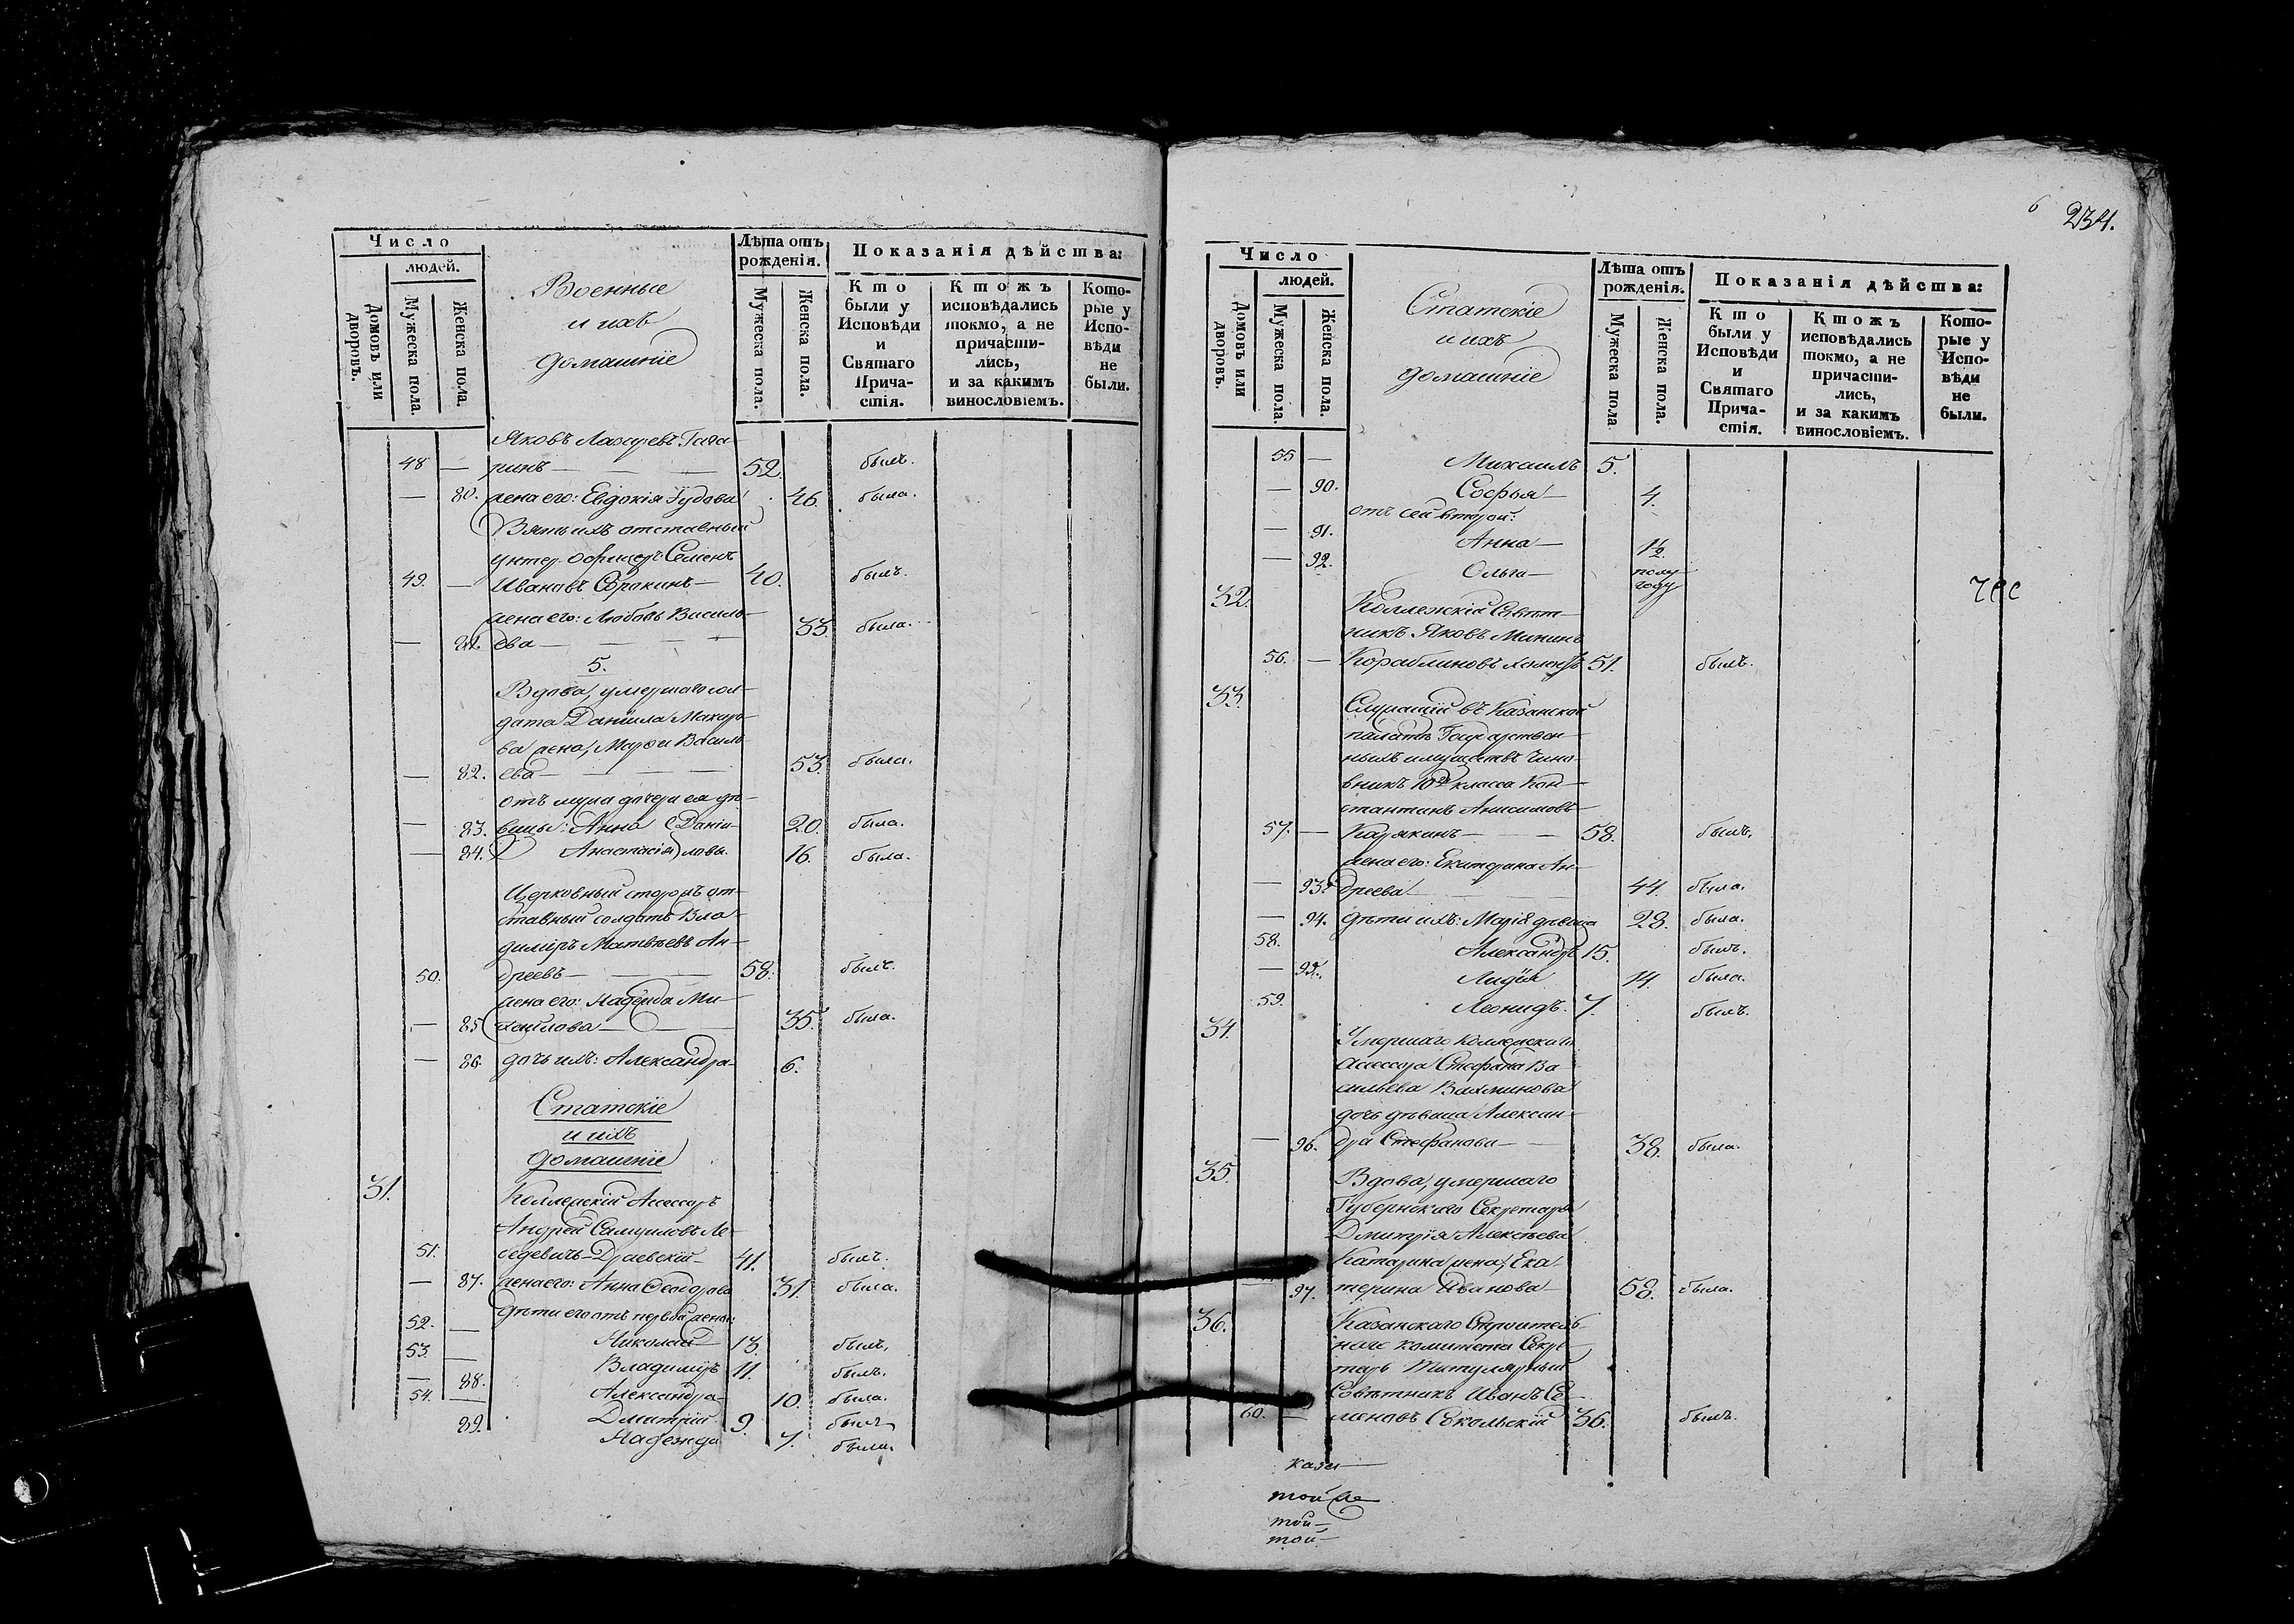 Число
людей.
Домовъ или дворовъ.
Мужеска пола.
Женска пола.
Военные
и ихъ
домашніе
Лѣта отъ
рожденія.
Мужеска пола.
Женска пола.
Показанія дѣйства:
Кто
были у
Исповѣди
и
Святаго
Прича-
стія.
Ктожъ
исповѣдались
токмо, а не
причасти-
лись,
и за какимъ
винословіемъ.
Кото-
рые у
Испо-
вѣди
не
были.
Яковъ Лазаревъ
48 — ринъ — — 52. былъ.
— 80. жена его: Евдокія 46. была.
Зять ихъ отставный
унтер-офицеръ Семенъ
49. — Ивановъ Сорокинъ — 40. былъ.
жена его: Любовь Василь-
— 81. ева — — — 33 была.
5.
Вдова, умершаго сол-
дата Даніила Макаро-
ва жена, Марѳа Василь-
— 82. ева — — — 53. была.
отъ мужа дочери ея дѣ-
— 83. вицы: Анна Даніи- 20. была.
— 84. Анастасія ловы. 16. была.
Церковный сторожъ от-
ставный солдатъ Вла-
димиръ Матвѣевъ Ан-
50. дреевъ — — — 58. былъ.
жена его: Надежда Ми-
— 85 хайлова — — 35. была.
— 86. дочь ихъ: Александра — 6.
Статскіе
и ихъ
домашніе
31.
Коллежскій Асессоръ
Андрей Самуиловъ Ле-
51. бедевичъ-Драевскій — 41. былъ.
— 87. жена его: Анна Ѳеодорова 31. была.
дѣти его отъ первой жены:
52. — Николай — 13. былъ.
53. — Владимиръ 11. былъ.
— 88. Александра — 10. была.
54. — Дмитрій 9. былъ
89. Надежда 7. была.
6 234.
Число
людей.
Домовъ или дворовъ.
Мужеска пола.
Женска пола.
Статскіе
и ихъ
домашніе
Лѣта отъ
рожденія.
Мужеска пола
Женска пола.
Показанія дѣйства:
Кто
были у
Исповѣди
и
Святаго
Прича-
стія.
Ктожъ
исповѣдались
токмо, а не
причасти-
лись,
и за какимъ
винословіемъ.
Кото-
рые у
Испо-
вѣди
не
были.
55 — Михаилъ 5.
— 90. Софья — 4.
отъ сей второй:
— 91. Анна — 1½.
— 92. Ольга — полу
году
32.
Коллежскій Совѣт-
никъ Яковъ Мининъ
56. — Кораблиновъ холостъ 51. былъ.
33.
Служащій въ Казанской
палатѣ Государствен-
ныхъ имуществъ Чино-
вникъ 10го класса Кон-
стантинъ Анисимовъ
57. — Карякинъ — — 58. былъ.
жена его: Екатерина Ан-
— 93. дреева — 44 была.
— 94. дѣти ихъ: Марія дѣвица 28. была.
58. Александръ 15. былъ.
— 95. Лидія 14. была.
59. Леонидъ. 7. былъ.
34.
Умершаго Коллежскаго
Асессора Стефана Ва-
сильева
дочь дѣвица Алексан-
— 96. дра Стефанова — — 38. была.
35.
Вдова, умершаго
Губернскаго Секретаря
Дмитрія Алексѣева
жена, Ека-
97. терина Иванова — 58. была.
36.
Казанскаго Строитель-
наго комитета Секре-
тарь Титулярный
Совѣтникъ Иванъ Се-
60. — меновъ Сокольскій 36. былъ.
каза
той же
той —
той —